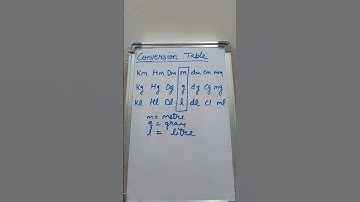 Conversion Table
Km Hm Dm m dm cm mm
Kg Hg Dg g dg Cg mg
Kl Hl Dl l dl Cl ml
m = metre
g = gram
l = litre